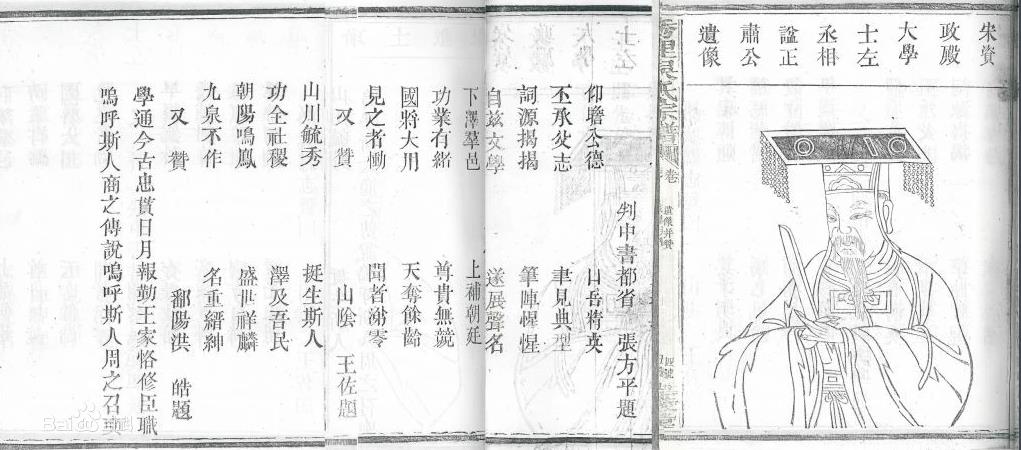 朱資
政殿
大學
士左
丞相
諡正
肅公
遺像
判中書都省 張方平題
仰瞻公德 山岳將英
丕承父志 聿見典型
詞源揚揚 筆陣惺惺
自茲文學 遂展聲名
下澤羣邑 上補朝廷
功業有緒 尊貴無競
國將大用 天奪餘齡
見之者慟 聞者涕零
又贊 山陰 王佐題
山川毓秀 挺生斯人
功全社稷 澤及吾民
朝陽鳴鳳 盛世祥麟
九泉不作 名重縉紳
又贊 鄱陽洪 皓題
學通今古忠貫日月報勤王家恪修臣職
嗚呼斯人商之傳說嗚呼斯人周之召
Baidu百科